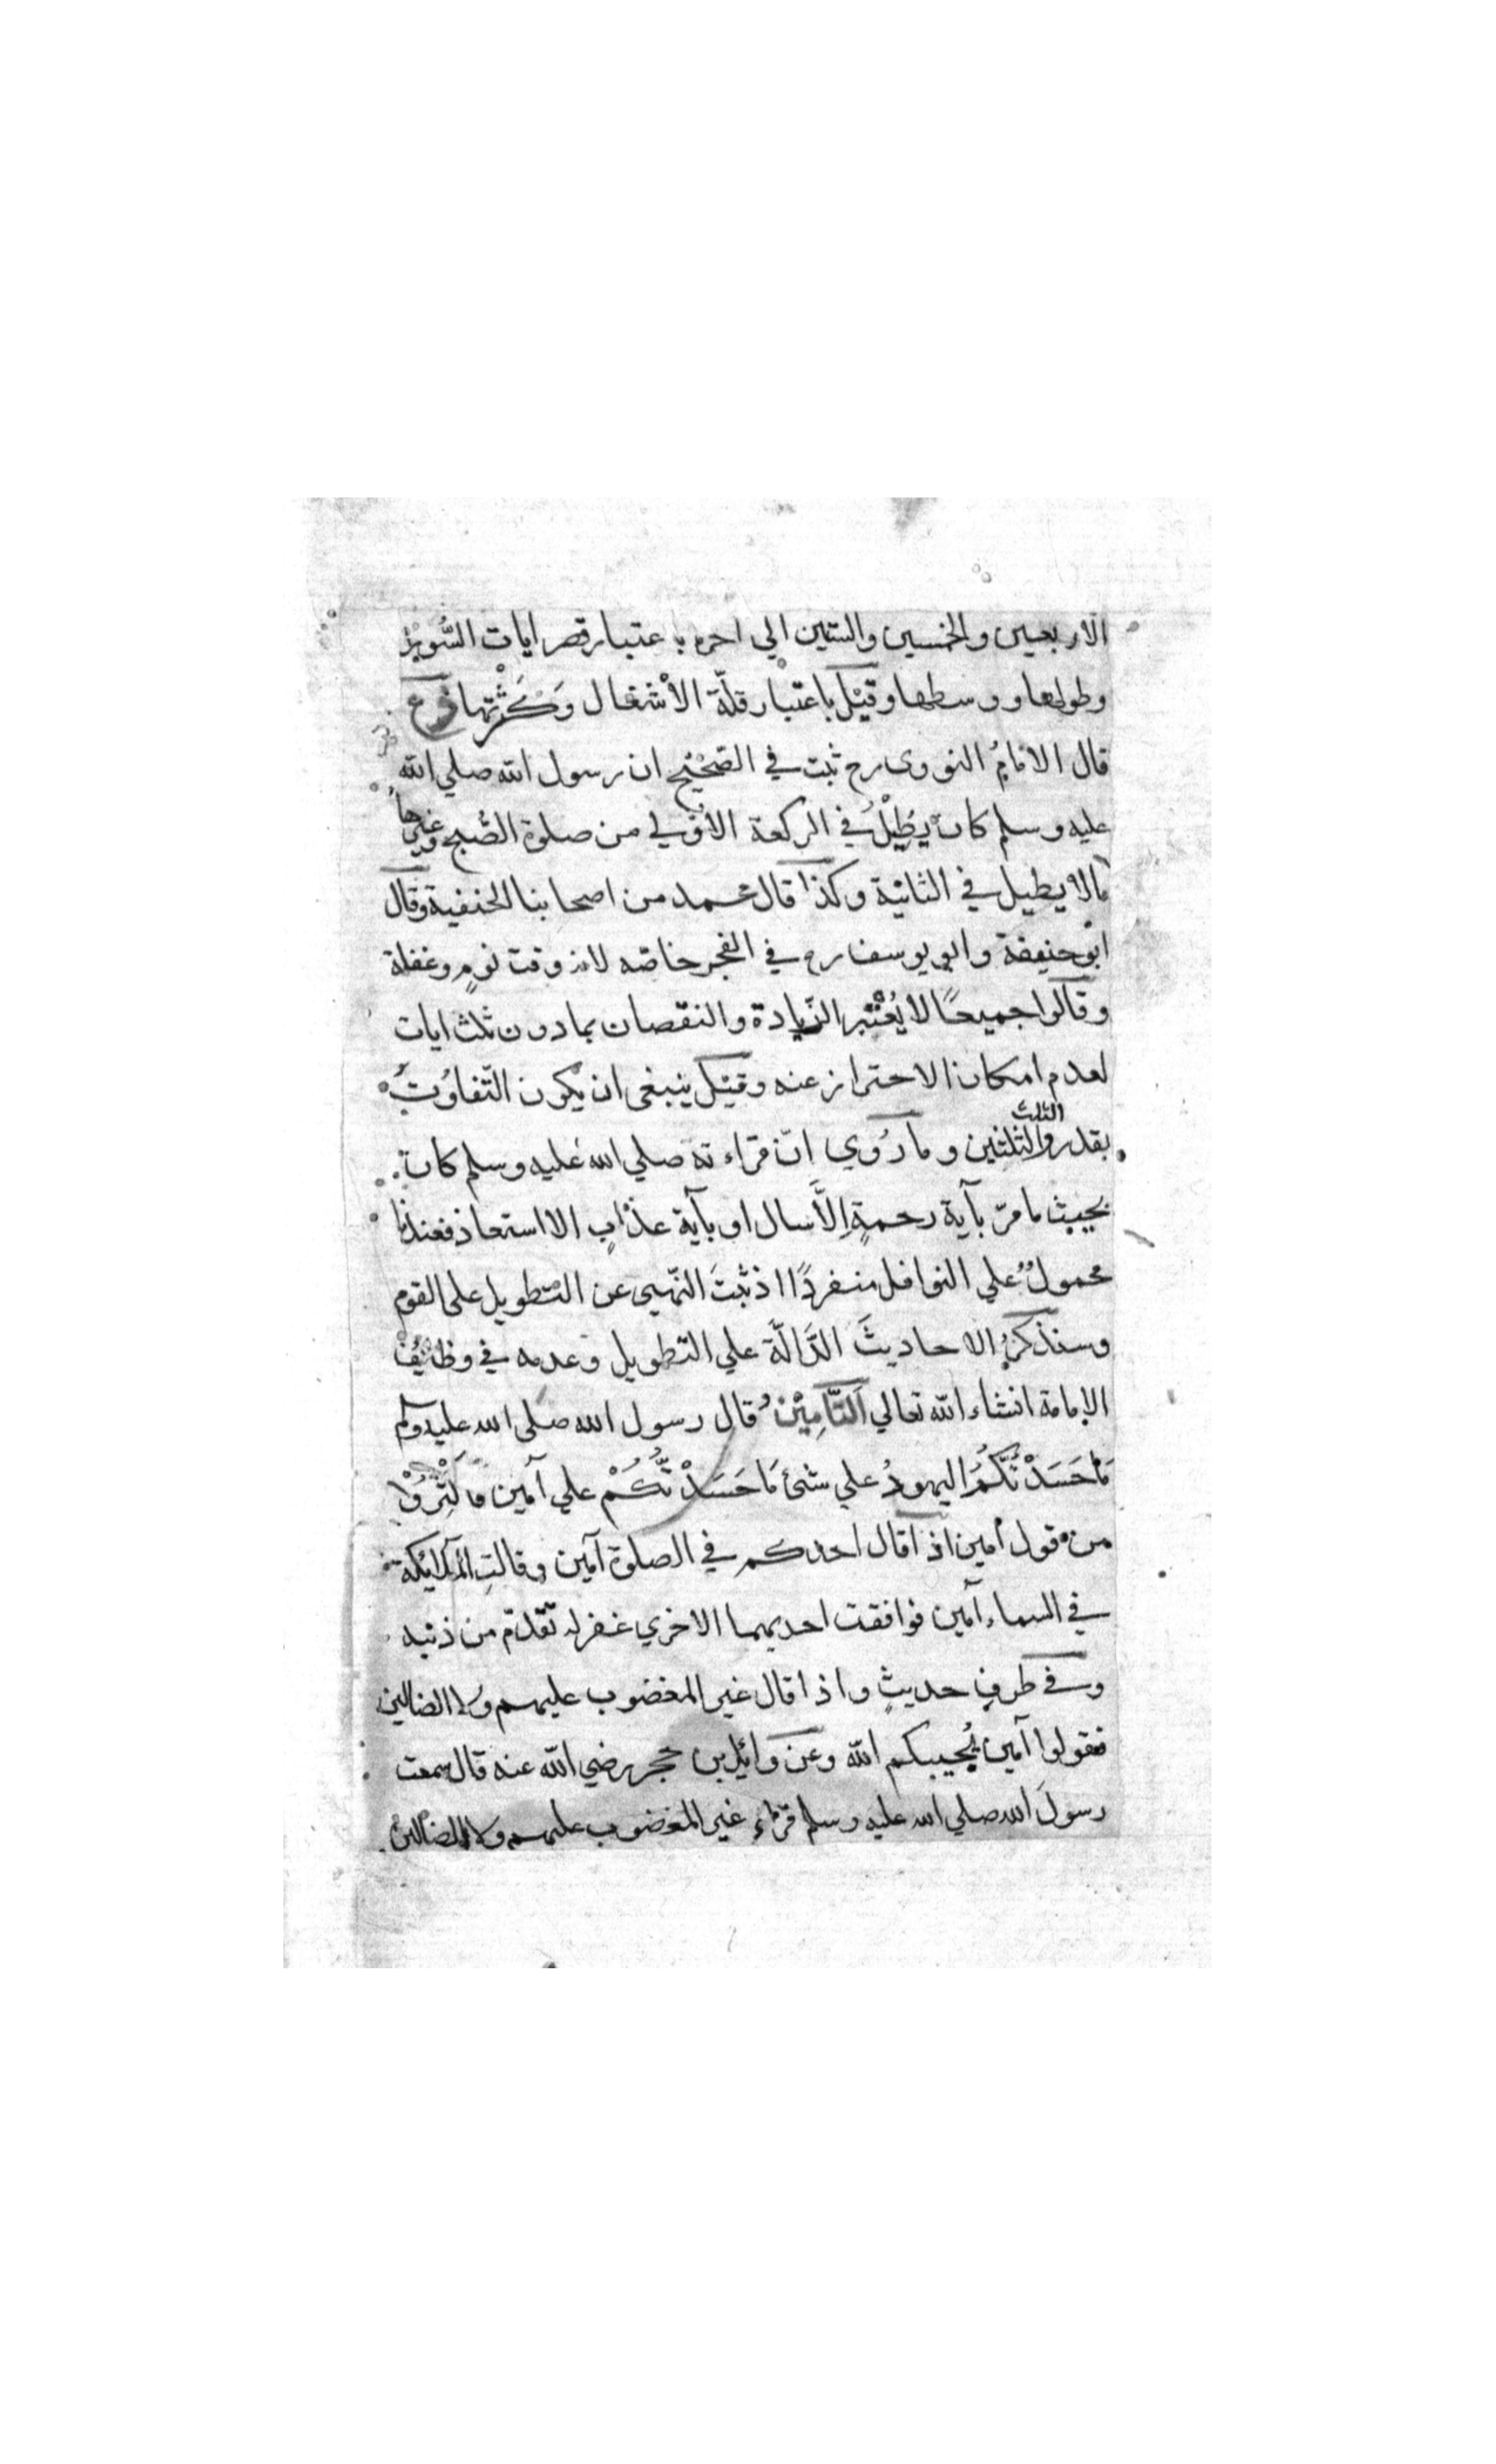 الاربعين والخمسين والستين الي اخره باعتبار قصر ايات السُّوَر
وطولها ووسطها وقيْل باعتبار قلّة الأشغال وَكَثْرتها فرع
قال الامامُ النووى رح ثبت في الصّحيْح ان رسول الله صلي الله
عليه وسلم كان يُطِيْلُ في الركعة الاوْلي من صلوة الصُّبح وغيرها
مالا يطيل في الثانية وكذا قال محمد من اصحابنا الحنفية وقال
ابو حنيفة وابو يوسف رح في الفجر خاصّه لانه وقت نومٍ وغفلة
وقالوا جميعًا لا يُعْتبر الزّيادة والنقصان بما دون ثلث ايات
لعدم امكان الاحتراز عنه وقيْل ينبغى ان يكون التّفاوُتُ
بقدر الثلث والثلثين وما رُوي انّ قراءته صلي الله عليه وسلم كان
بحيث ما مرّ بآية رحمةٍ إلاَّ سال او بآية عذابٍ الا استعاذ فعندنا
محمولٌ علي النوافل منفردًا اذ ثبتَ النّهيى عن التّطويل على القوم
وسنذكرُ الاحاديثَ الدَّالَّة علي التّطويل وعدمه في وظائف
الامامة انشاء الله تعالي اَلتَّامِيْنُ قال رسول الله صلى الله عليه وسلم
مَا حَسَدْتُكُمُ اليهودُ علي شئ مَا حَسَدْتُّكُمْ علي آمين فاكْثِرُوْا
من قول امين اذا قال احدكم في الصلوة آمين وقالتِ الملائِكة
في السماء آمين فوافقت احديهما الاخري غفر له تقدّم من ذنبه
وفي طرفِ حديثٍ واذا قال غير المغضوب عليهم ولا الضالين
فقولوا آمين يُجيبكم الله وعن وائل بن حجر رضي الله عنه قال سمعت
رسولَ الله صلي الله عليه وسلم قرَاءَ غير المغضوب عليهم ولا الضالين